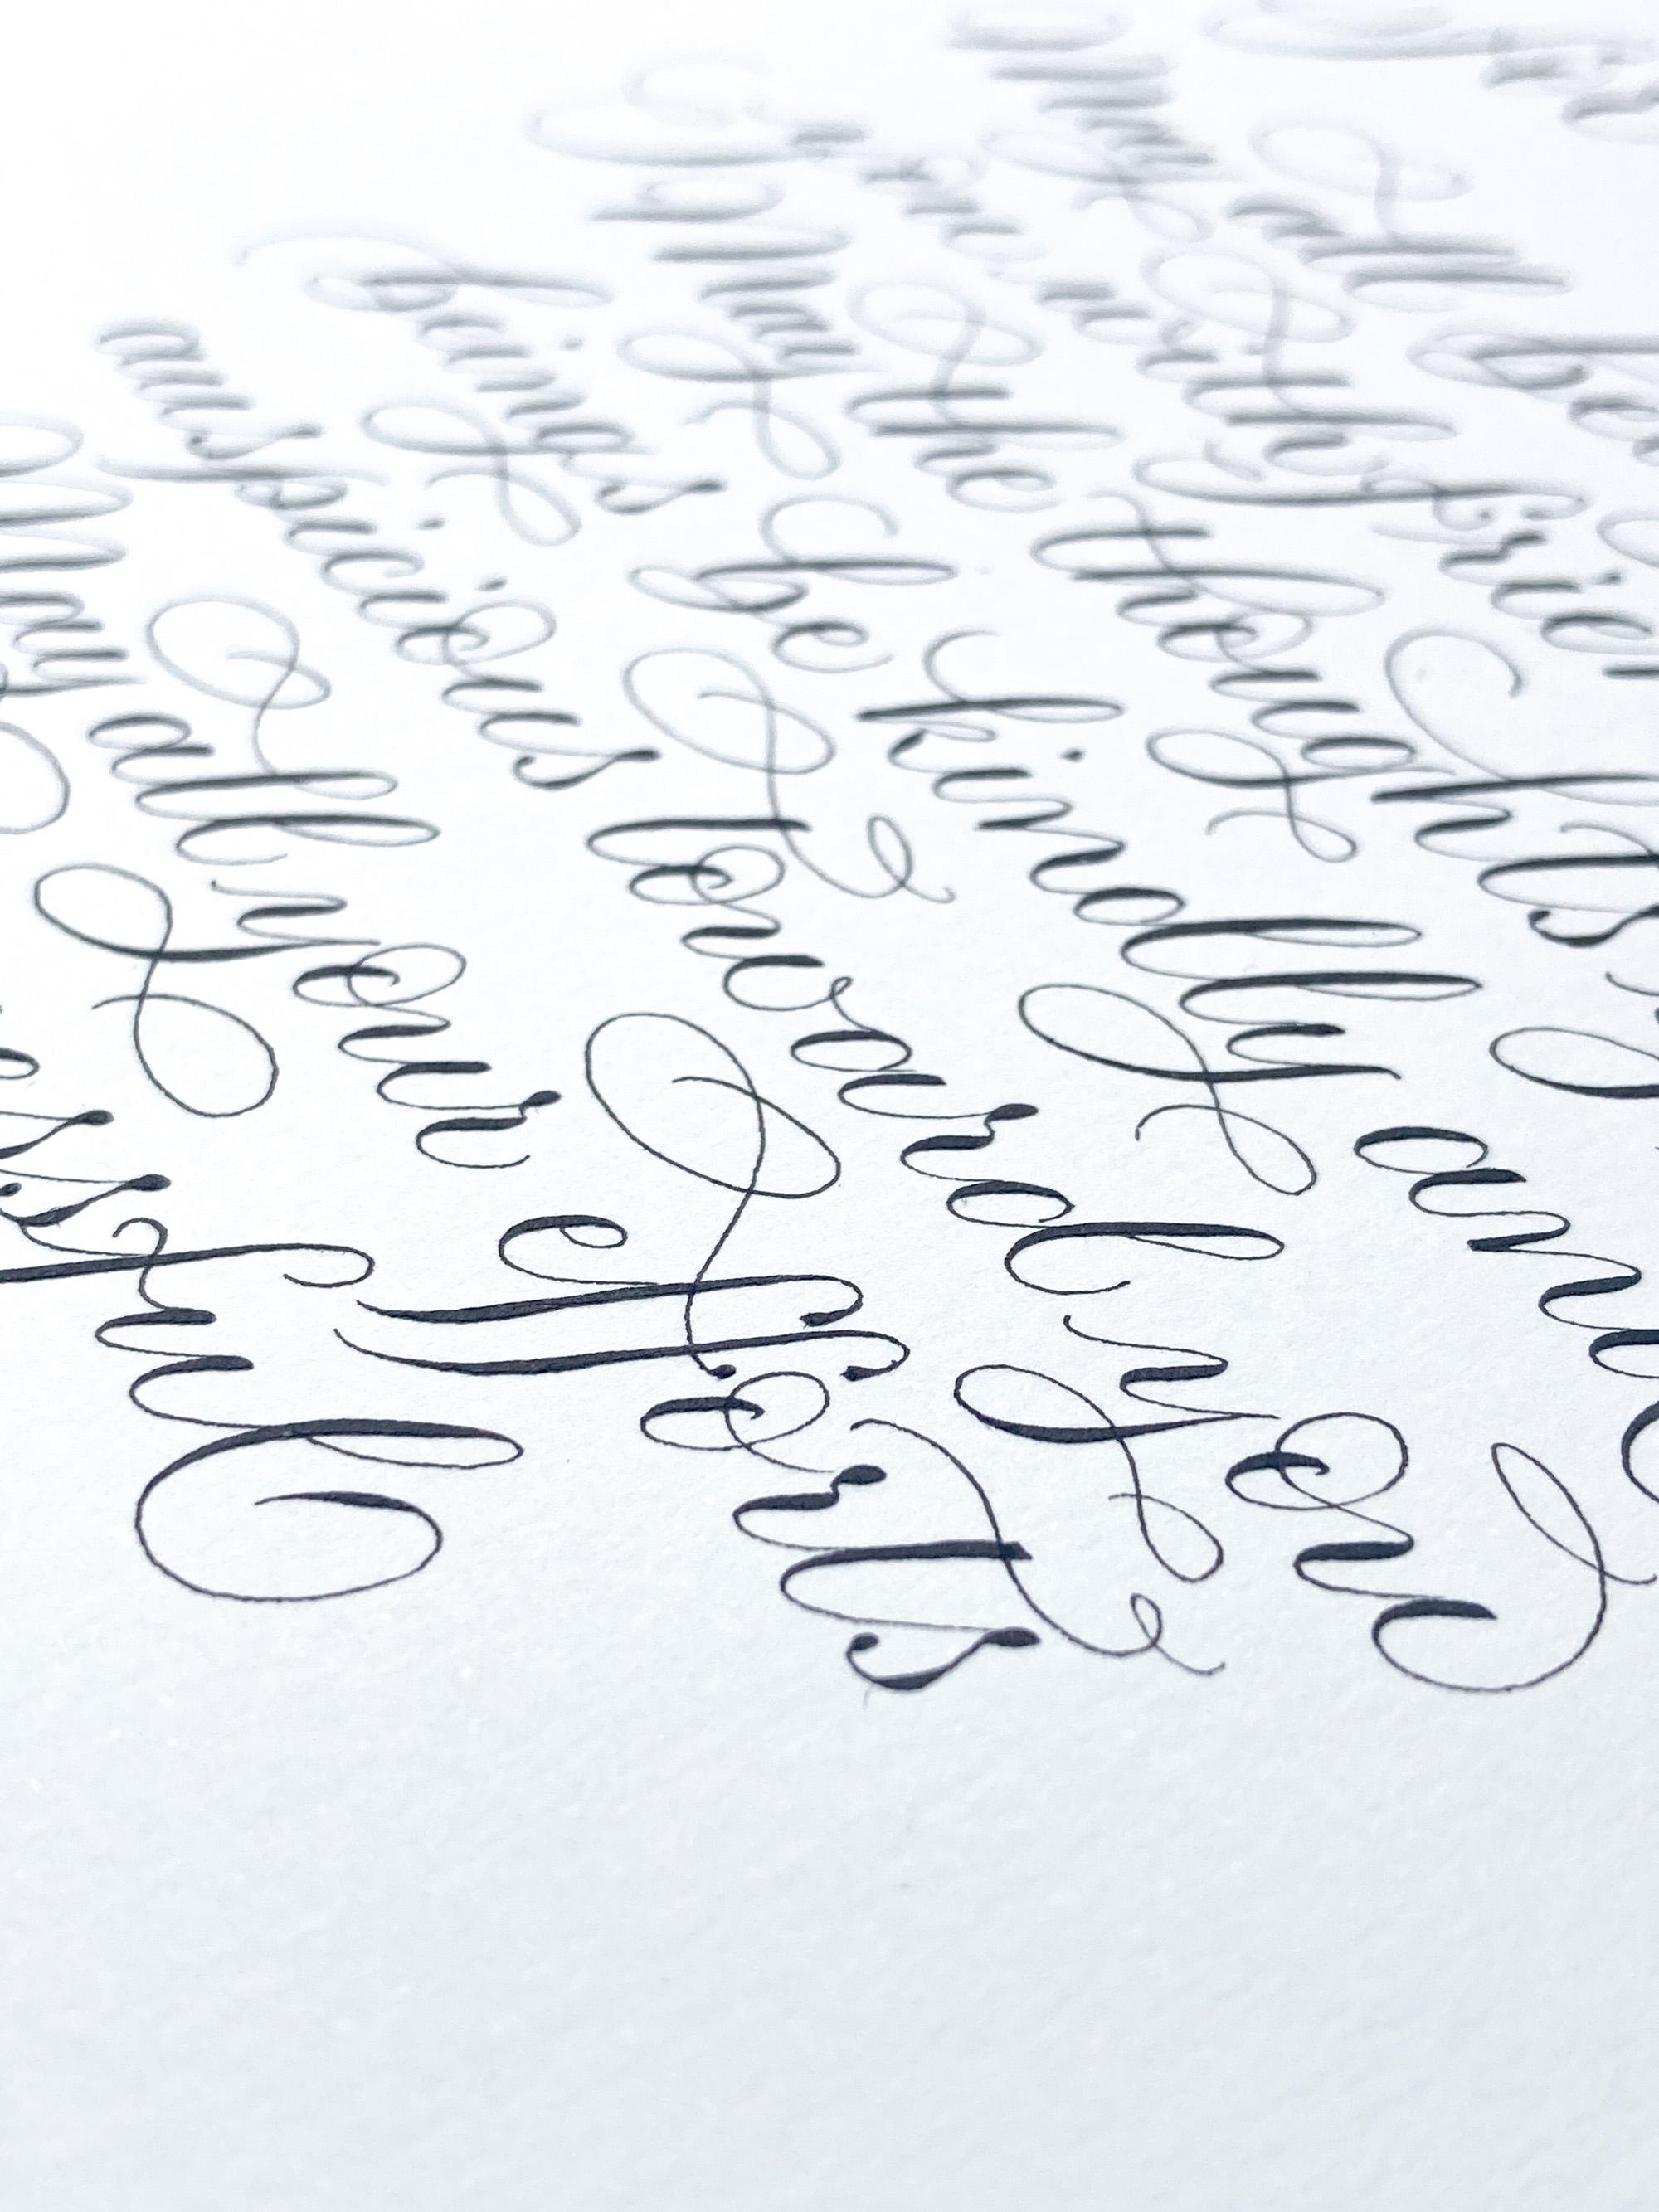 May all be
with frien
May the thoughts
beings be kindly and
auspicious toward you
May all your efforts
ssful